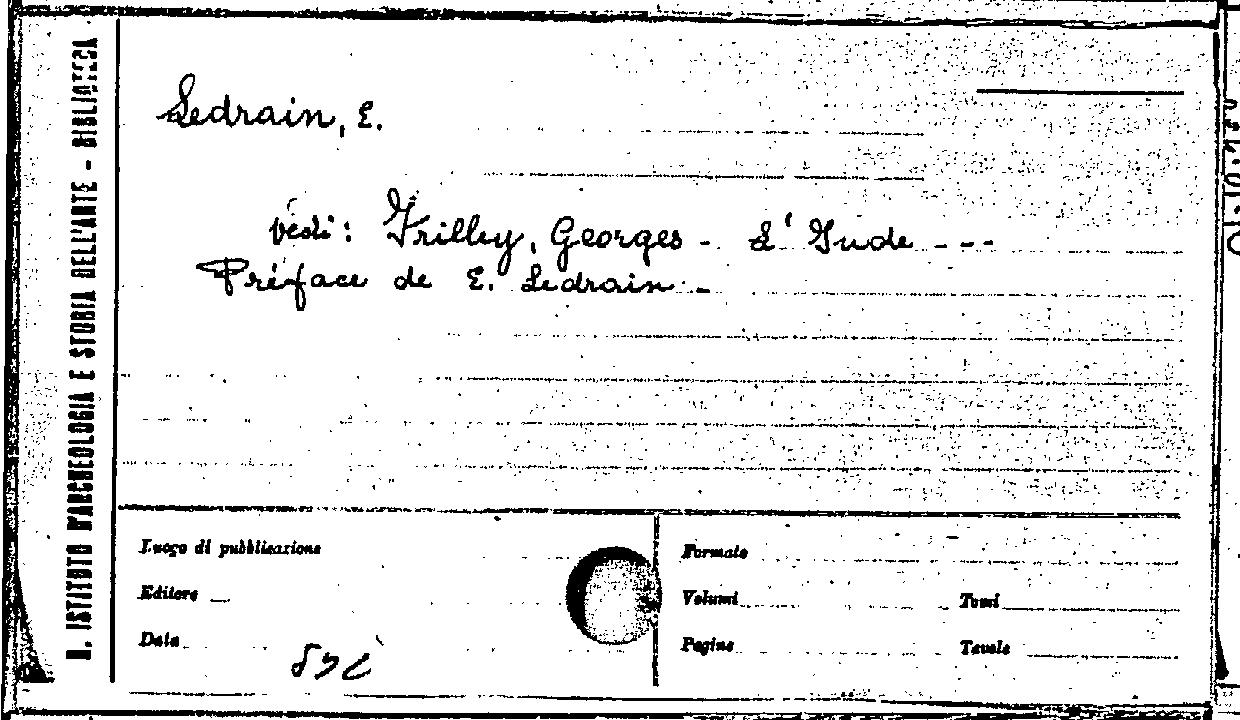 R. ISTITUTO D'ARCHEOLOGIA E STORIA DELL'ARTE - BIBLIOTECA
Ledrain, E.
vedi: Frilley, Georges - L'Inde ---
Préface de E. Ledrain. -
Luogo di pubblicazione
Editore
Data
Formato
Volumi Tomi
Pagine Tavole